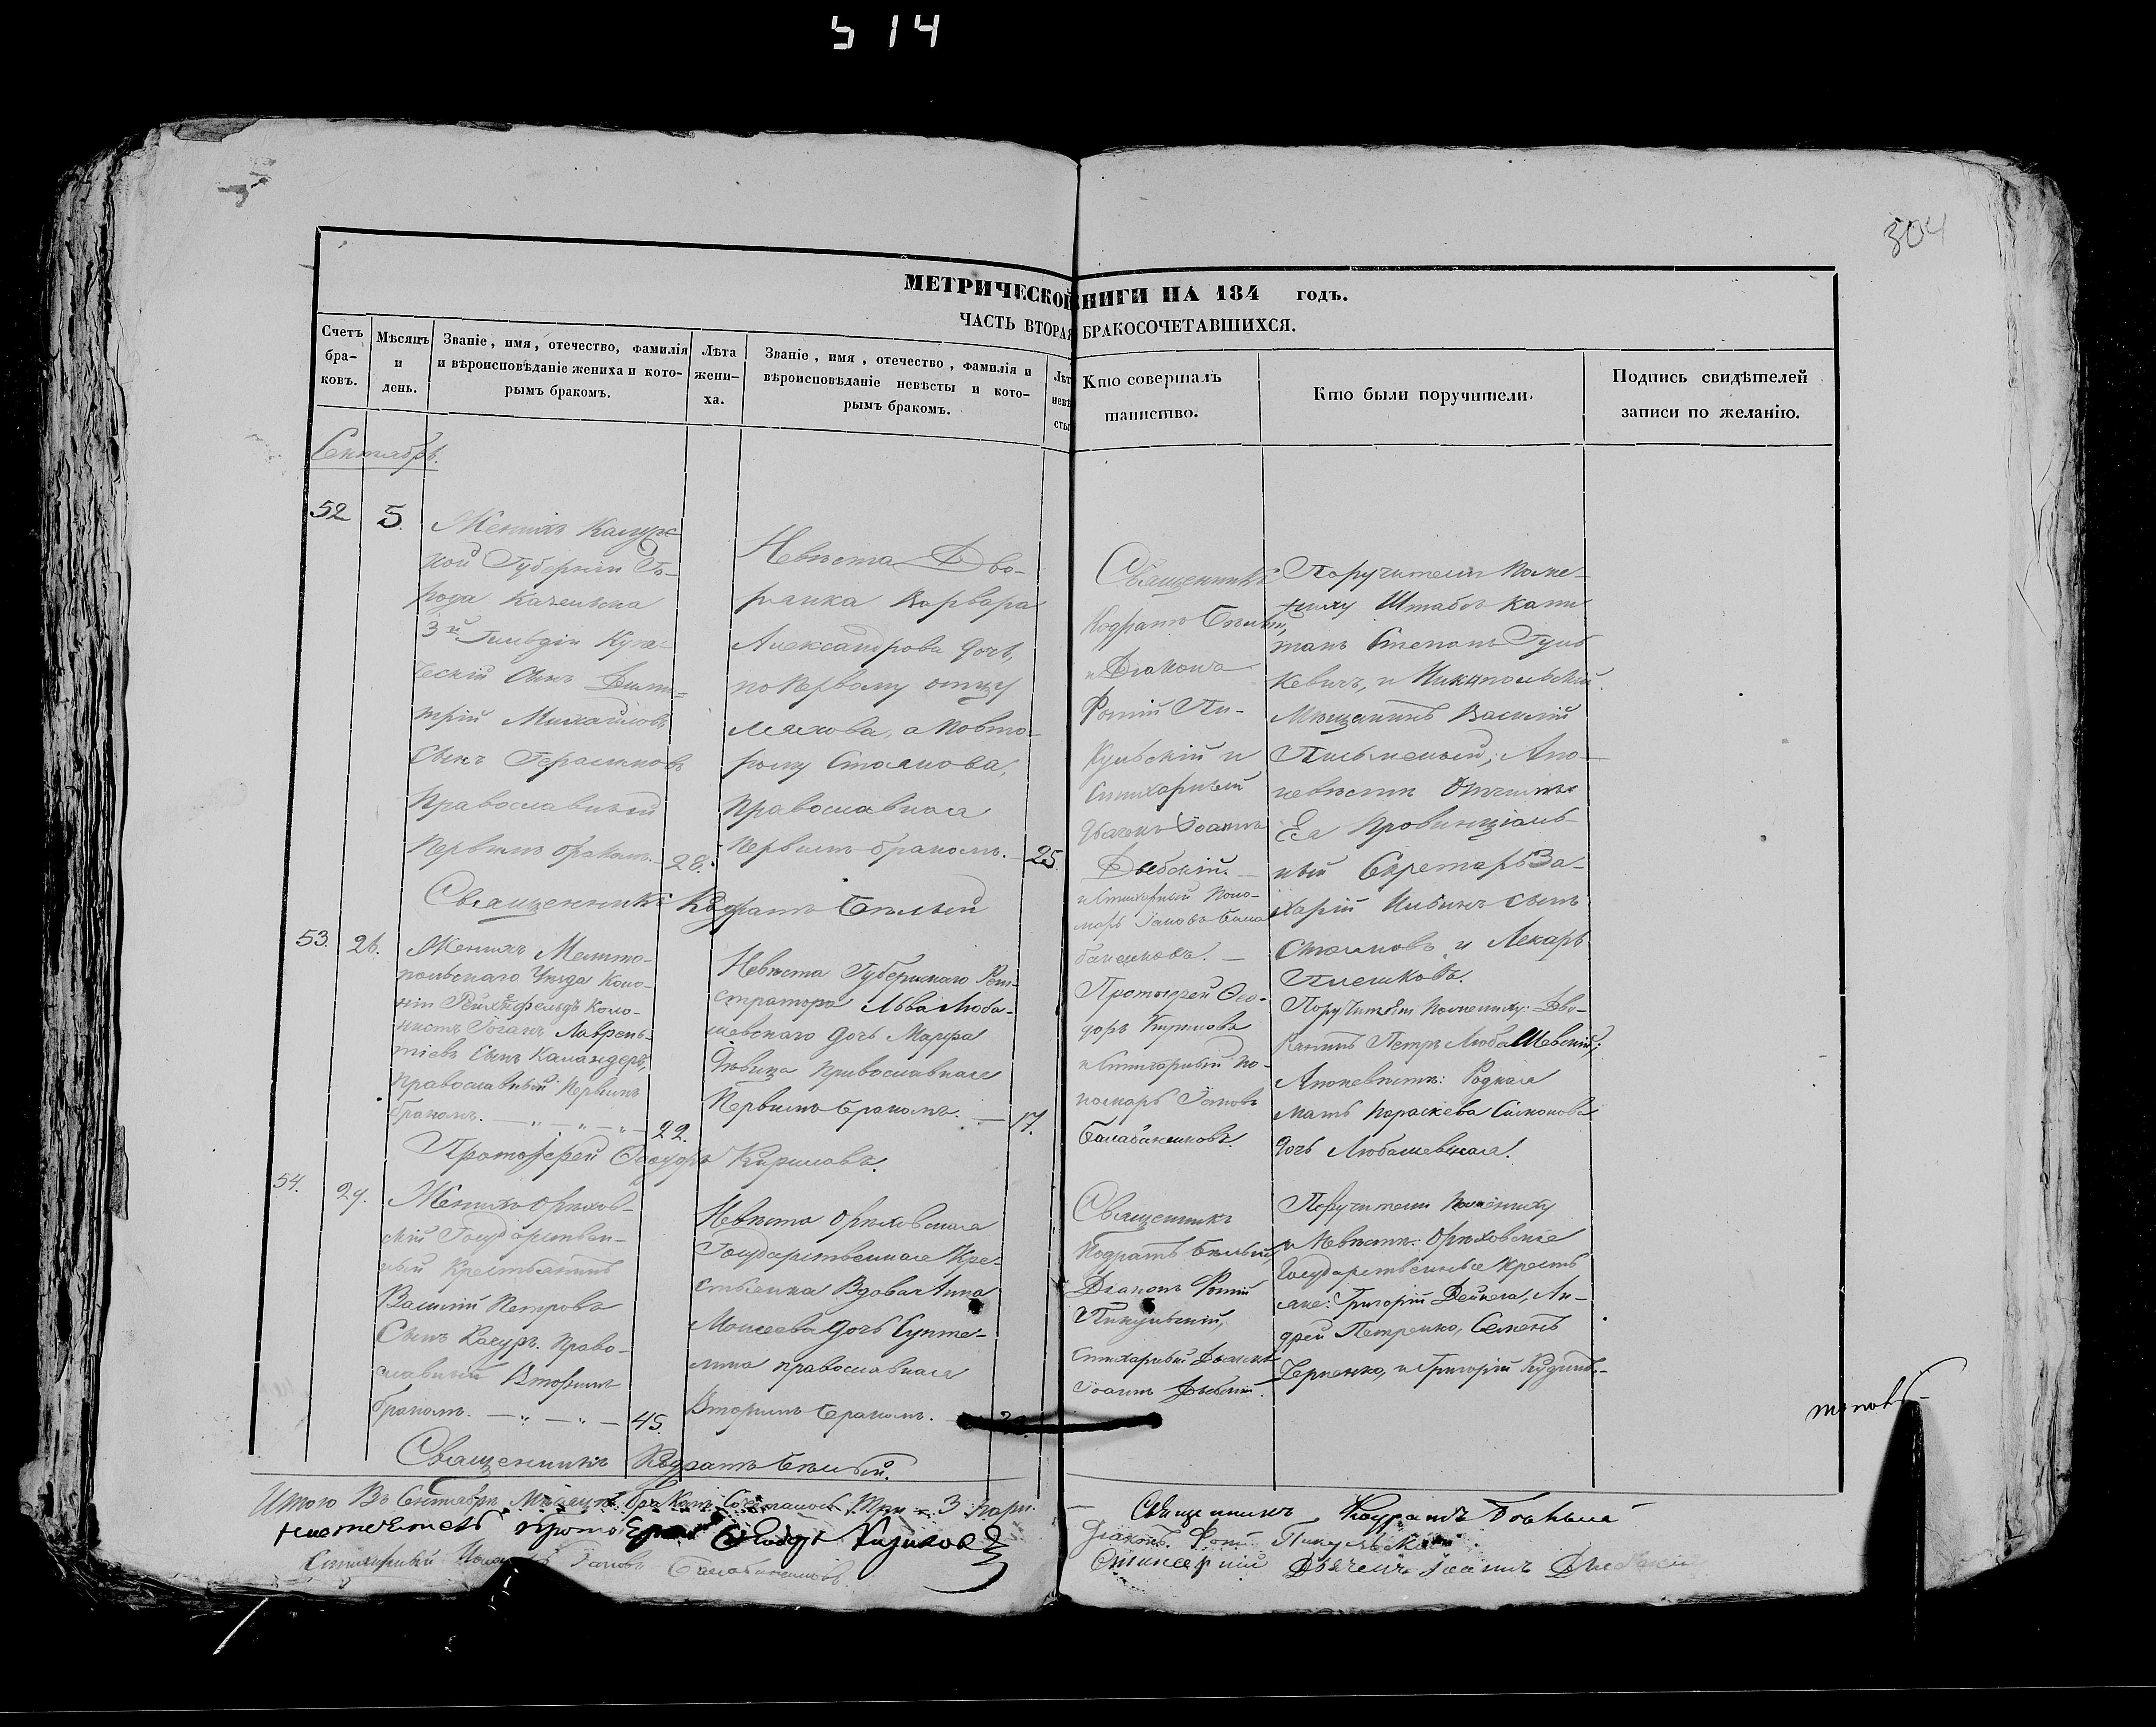 514
304
МЕТРИЧЕСКОЙ НИГИ НА 184 годъ.
ЧАСТЬ ВТОРАЯ БРАКОСОЧЕТАВШИХСЯ.
Счетъ браковъ.
Мѣсяцъ и день.
Званіе, имя, отечество, фамилія
и вѣроисповѣданіе жениха и кото-
рымъ бракомъ.
Лѣта
жени-
ха.
Званіе, имя, отечество, фамилія и
вѣроисповѣданіе невѣсты и кото-
рымъ бракомъ.
Лѣт
невѣ
сты
Кто совершалъ
таинство.
Кто были поручители.
Подпись свидѣтелей
записи по желанію.
Сентябрь.
52
5.
Женихъ Калужс
кой Губерніи Го-
рода
3й Гильдіи Купе-
ческій Сынъ Дими-
трій Михайловъ
Сынъ Герасимовъ
Православный
Первымъ бракомъ.
28.
Невѣста Дво-
рянка Варвара
Александрова дочь,
по Первому отцу
а повто-
рому Стоянова,
Православная
Первымъ бракомъ.
25.
Священникъ
Кодратъ Бѣлый,
и Діаконъ
Фотій Пи-
кульскій и
Стихарный
Дьячекъ Іоаннъ
Дыбскій.
и Стихарный Поно-
марь Іаковъ Бала
баненковъ.
Поручители по же-
ниху Штабсъ Капи
танъ Степанъ Гуль
кевичъ, и Никопольскій
Мѣщанинъ Василій
Письменый; А по
невѣстѣ Отчимъ
Ея Провинціаль
ный Секретарь За-
харій Ильинъ сынъ
Стояновъ, и Лекарь
Плешковъ.
Священникъ Кодратъ Бѣлый
53.
26.
Женихъ Мелито-
польскаго Уѣзда Коло-
ніи Рейхенфельдъ Коло-
нистъ Іоганъ Лаврень-
тіевъ Сынъ Каландеръ,
Православный Первымъ
бракомъ.
22.
Невѣста Губернскаго Реги-
стратора Льва Люба-
шевскаго дочь Марфа
Дѣвица Православная
Первымъ бракомъ.
17.
Протоіерей Ѳео-
доръ Кириловъ
и Стихарный По-
номарь Іаковъ
Балабаненковъ.
Поручители по жениху: Дво-
рянинъ Петръ Любашевскій;
А по невѣстѣ: Родная
мать Параскева Симонова
дочь Любашевская.
Протоіерей Ѳеодоръ Кириловъ.
54.
29.
Женихъ Орѣхов-
скій Государствен-
ный Крестьянинъ
Василій Петровъ
Сынъ Качуръ. Право-
славный Вторымъ
бракомъ.
45.
Невѣста Орѣховская
Государственная Кре-
стьянка Вдова Анна
Моисеева дочь
православная
Вторымъ бракомъ.
Священникъ
Кодратъ Бѣлый,
Діаконъ Фотій
Пикульскій,
Стихарный Дьячекъ
Іоаннъ Дыбскій.
Поручители по жениху
и Невѣстѣ: Орѣховскіе
Государственные Кресть
яне: Григорій Дейнега, Ан-
дрей Петренко, Семенъ
Черненко, и Григорій
Священникъ Кодратъ Бѣлый.
Итого Въ Сентябрѣ Мѣсяцѣ браковъ Три = 3 пары.
Протоіерей Ѳеодоръ Кириловъ
Стихарный Пономарь Іаковъ Балабаненковъ
Священникъ Кодратъ Бѣлый
Діаконъ Фотій Пикульскій
Стихарный Дьячекъ Іоаннъ Дыбскій